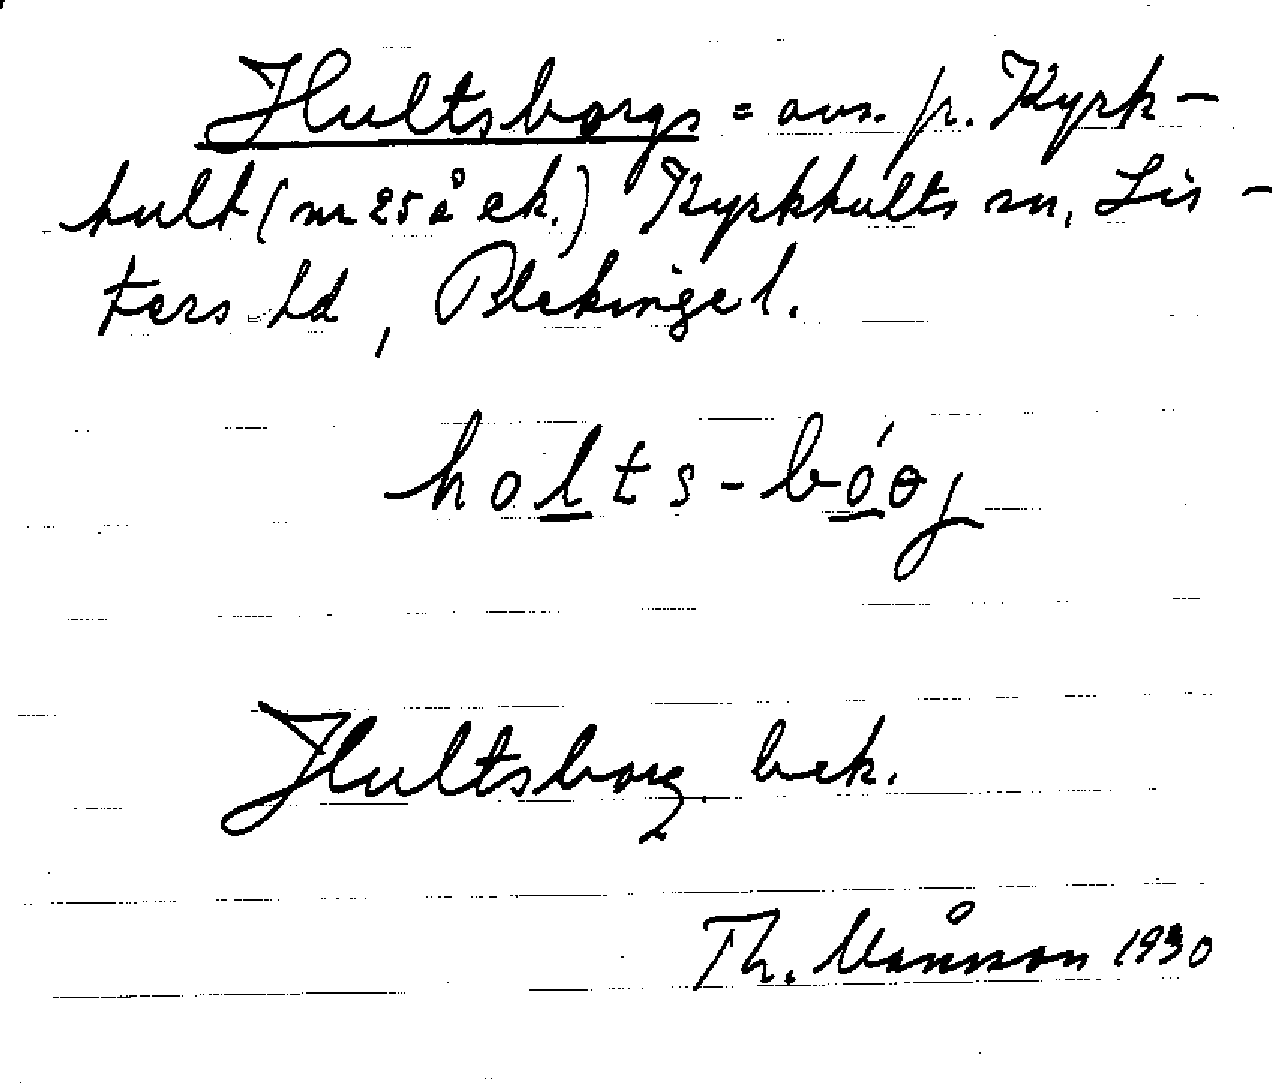 Hultsborgs = avs. fr. Kyrk-
hult (nr 25 å ek.) Kyrkhults sn, Lis-
ters hd, Blekinge l.
holts-bóɵj
Hultsborg bek.
Th. Månsson 1930